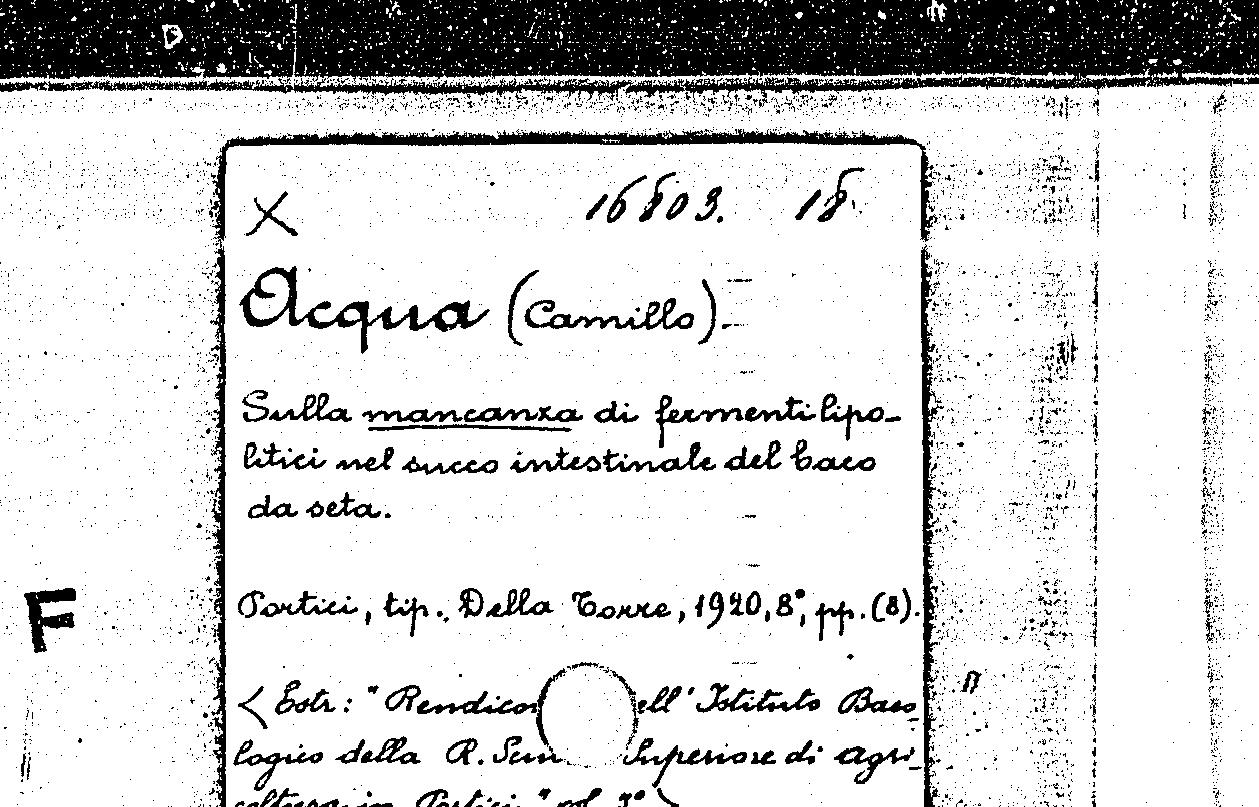 X 16803. 18
Acqua (Camillo).
Sulla mancanza di fermenti lipo-
litici nel succo intestinale del baco
da seta.
Portici, tip. Della Torre, 1920, 8°, pp. (8).
F
< Estr: "Rendicon ell' Istituto Baco
logico della R. Scu Superiore di Agri
coltura in Portici" vol. >